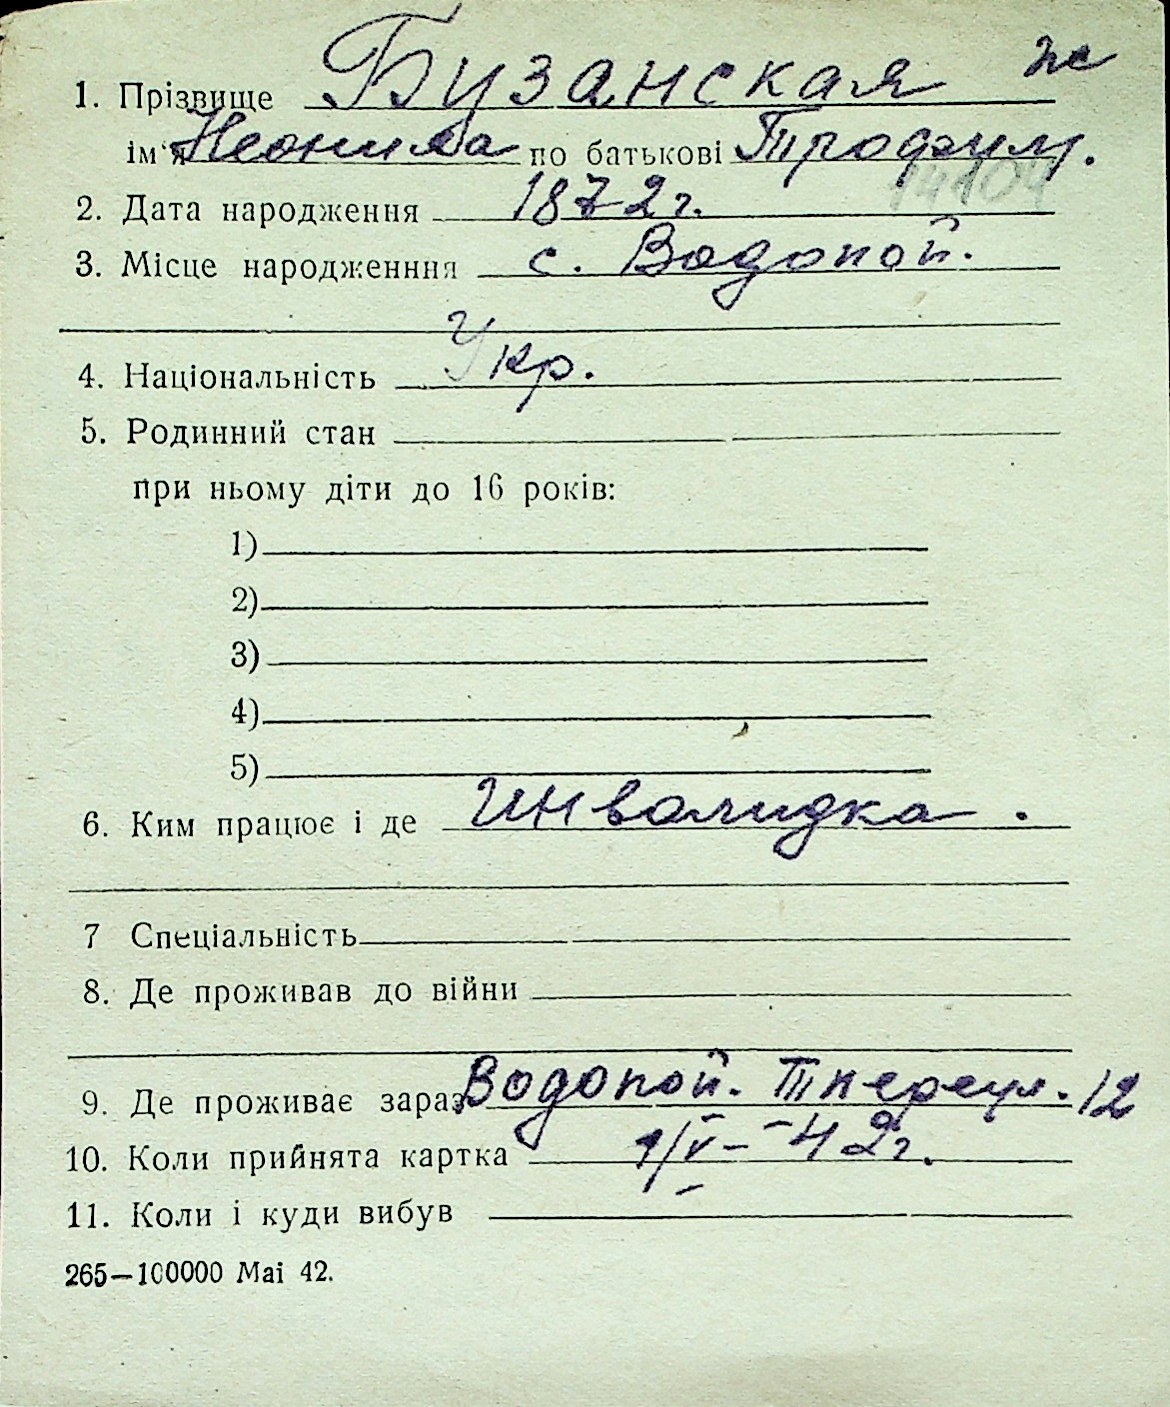 1. Прізвище Бузанская ж
ім'я Неонила по батькові Трофим.
14104
2. Дата народження 1872 г.
3. Місце народженння с. Водопой.
4. Національність Укр.
5. Родинний стан
при ньому діти до 16 років:
1)
2)
3)
4)
5)
6. Ким працює і де Инвалидка.
7 Спеціальність
8. Де проживав до війни
9. Де проживає зараз Водопой. 12
10. Коли прийнята картка 1/V-42г.
11. Коли і куди вибув
265—100000 Mai 42.